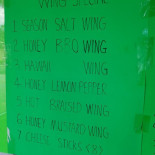 WING SPECIAL
1 SEASON SALT WING
2 HONEY B.B.Q WING
3 HAWAII WING
4 HONEY LEMON PEPPER
5 HOT BRAISED WING
6 HONEY MUSTARD WING
7 CHEESE STICKS (8)